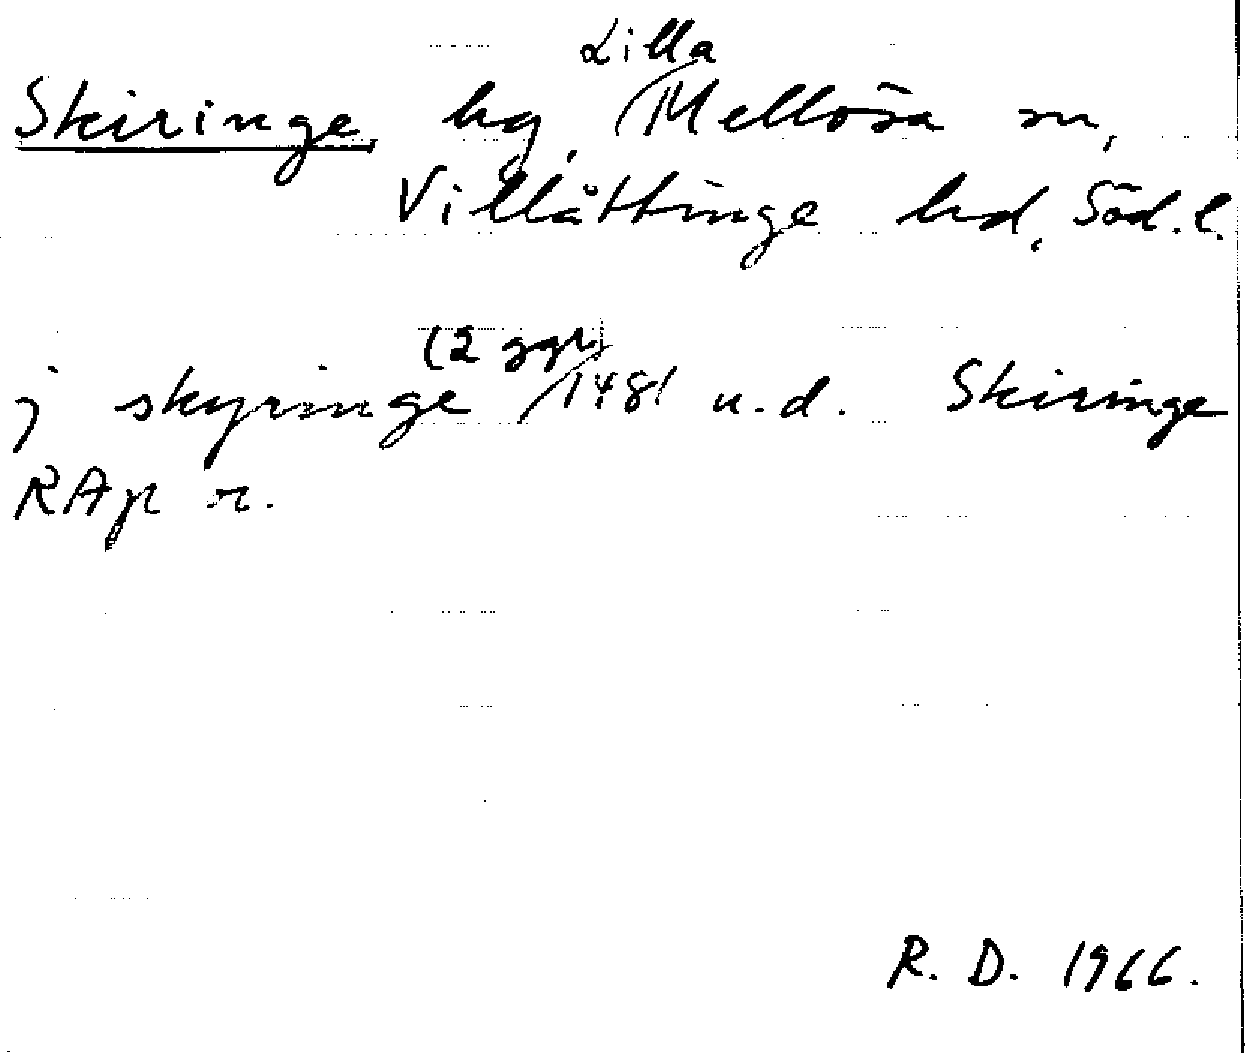 Lilla
Skiringe, hg, Mellösa sn,
Villåttinge hd, Söd. l.
(2 ggr)
j skyringe 1481 u.d. Skiringe
RAp r.
R. D. 1966.